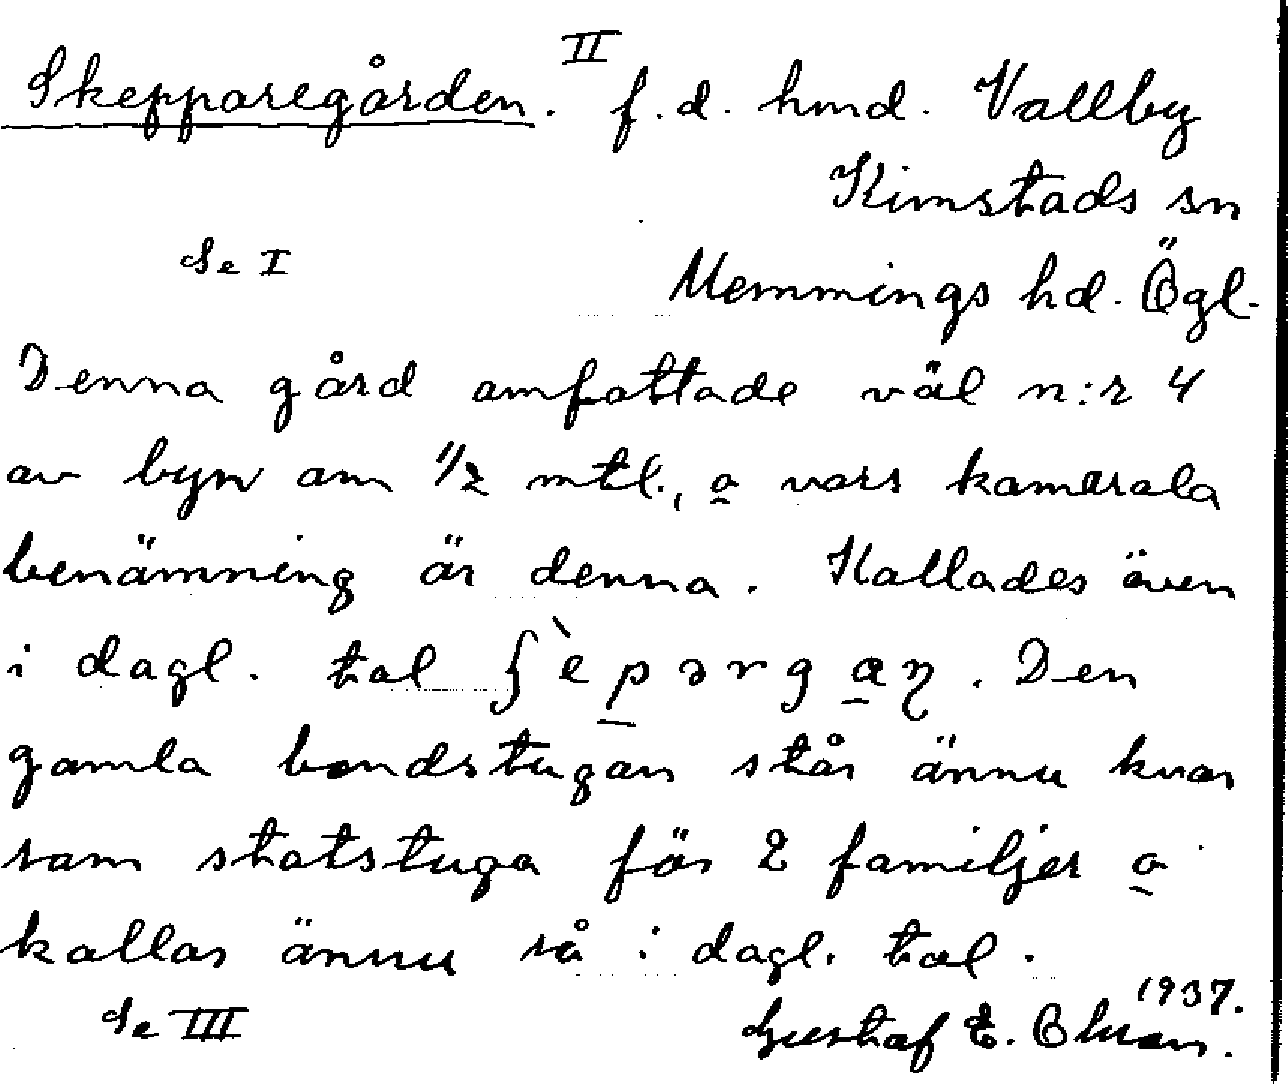 II
Skepparegården. f.d. hmd. Vallby
Kimstads sn
Se I
Memmings hd. Ögl.
Denna gård omfattade väl n:r 4
av byn om 1/2 mtl., o vars kamerala
benämning är denna. Kallades även
i dagl. tal ʃèpərgaɳ. Den
gamla bondstugan står ännu kvar
som statstuga för 2 familjer o
kallas ännu så i dagl. tal.
1937.
Se III Gustaf E. Ohman.